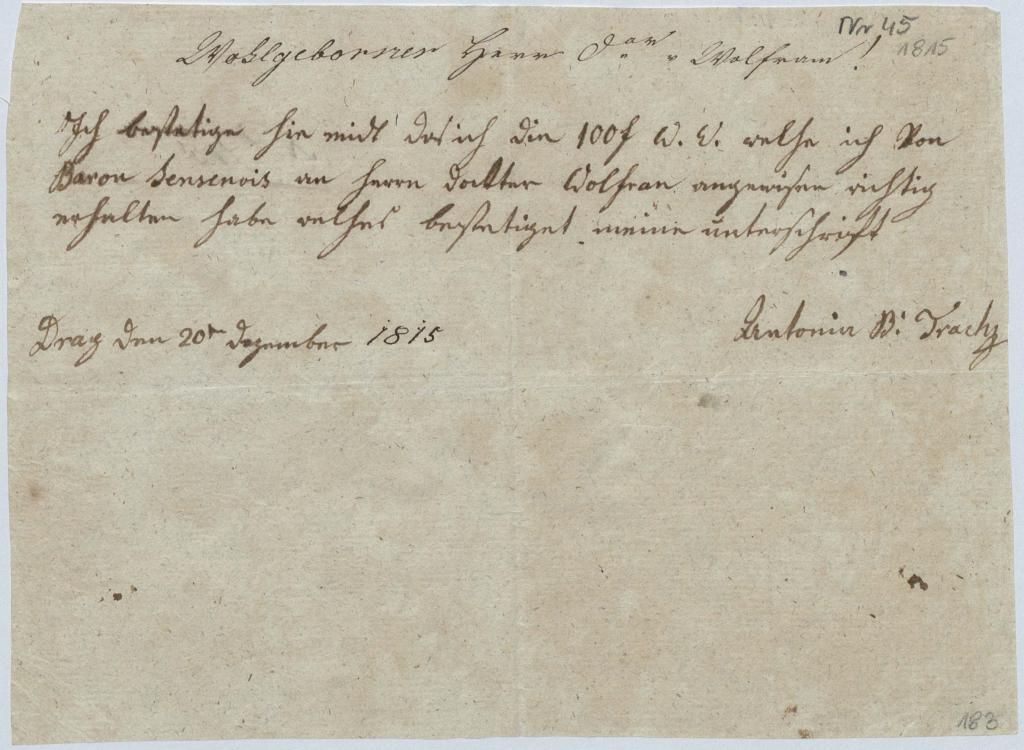 Nr 45
1815
Wohlgeborner Herr v Wolfram!
Ich bestetige hie midt das ich die 100f W. W. welhe ich Von
Baron Sensenois an herrn docktter Wolfran angewisen richtig
erhalten habe welhes bestetiget meine unterschrift
Prag den 20t Dezember 1815
Antonia B: Trach
183